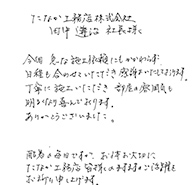 たなか工務店株式会社
田中 達治 社長様へ
今回 急な施工依頼にもかかわらず
日程も合わせていただき 感謝いたしております。
丁寧に施工いただき 部屋の雰囲気も
明るくなり喜んでおります。
ありがとうございました。
酷暑の毎日ですが、お体お大切に
たなか工務店 皆様の益々のご健勝を
お祈り申し上げます。